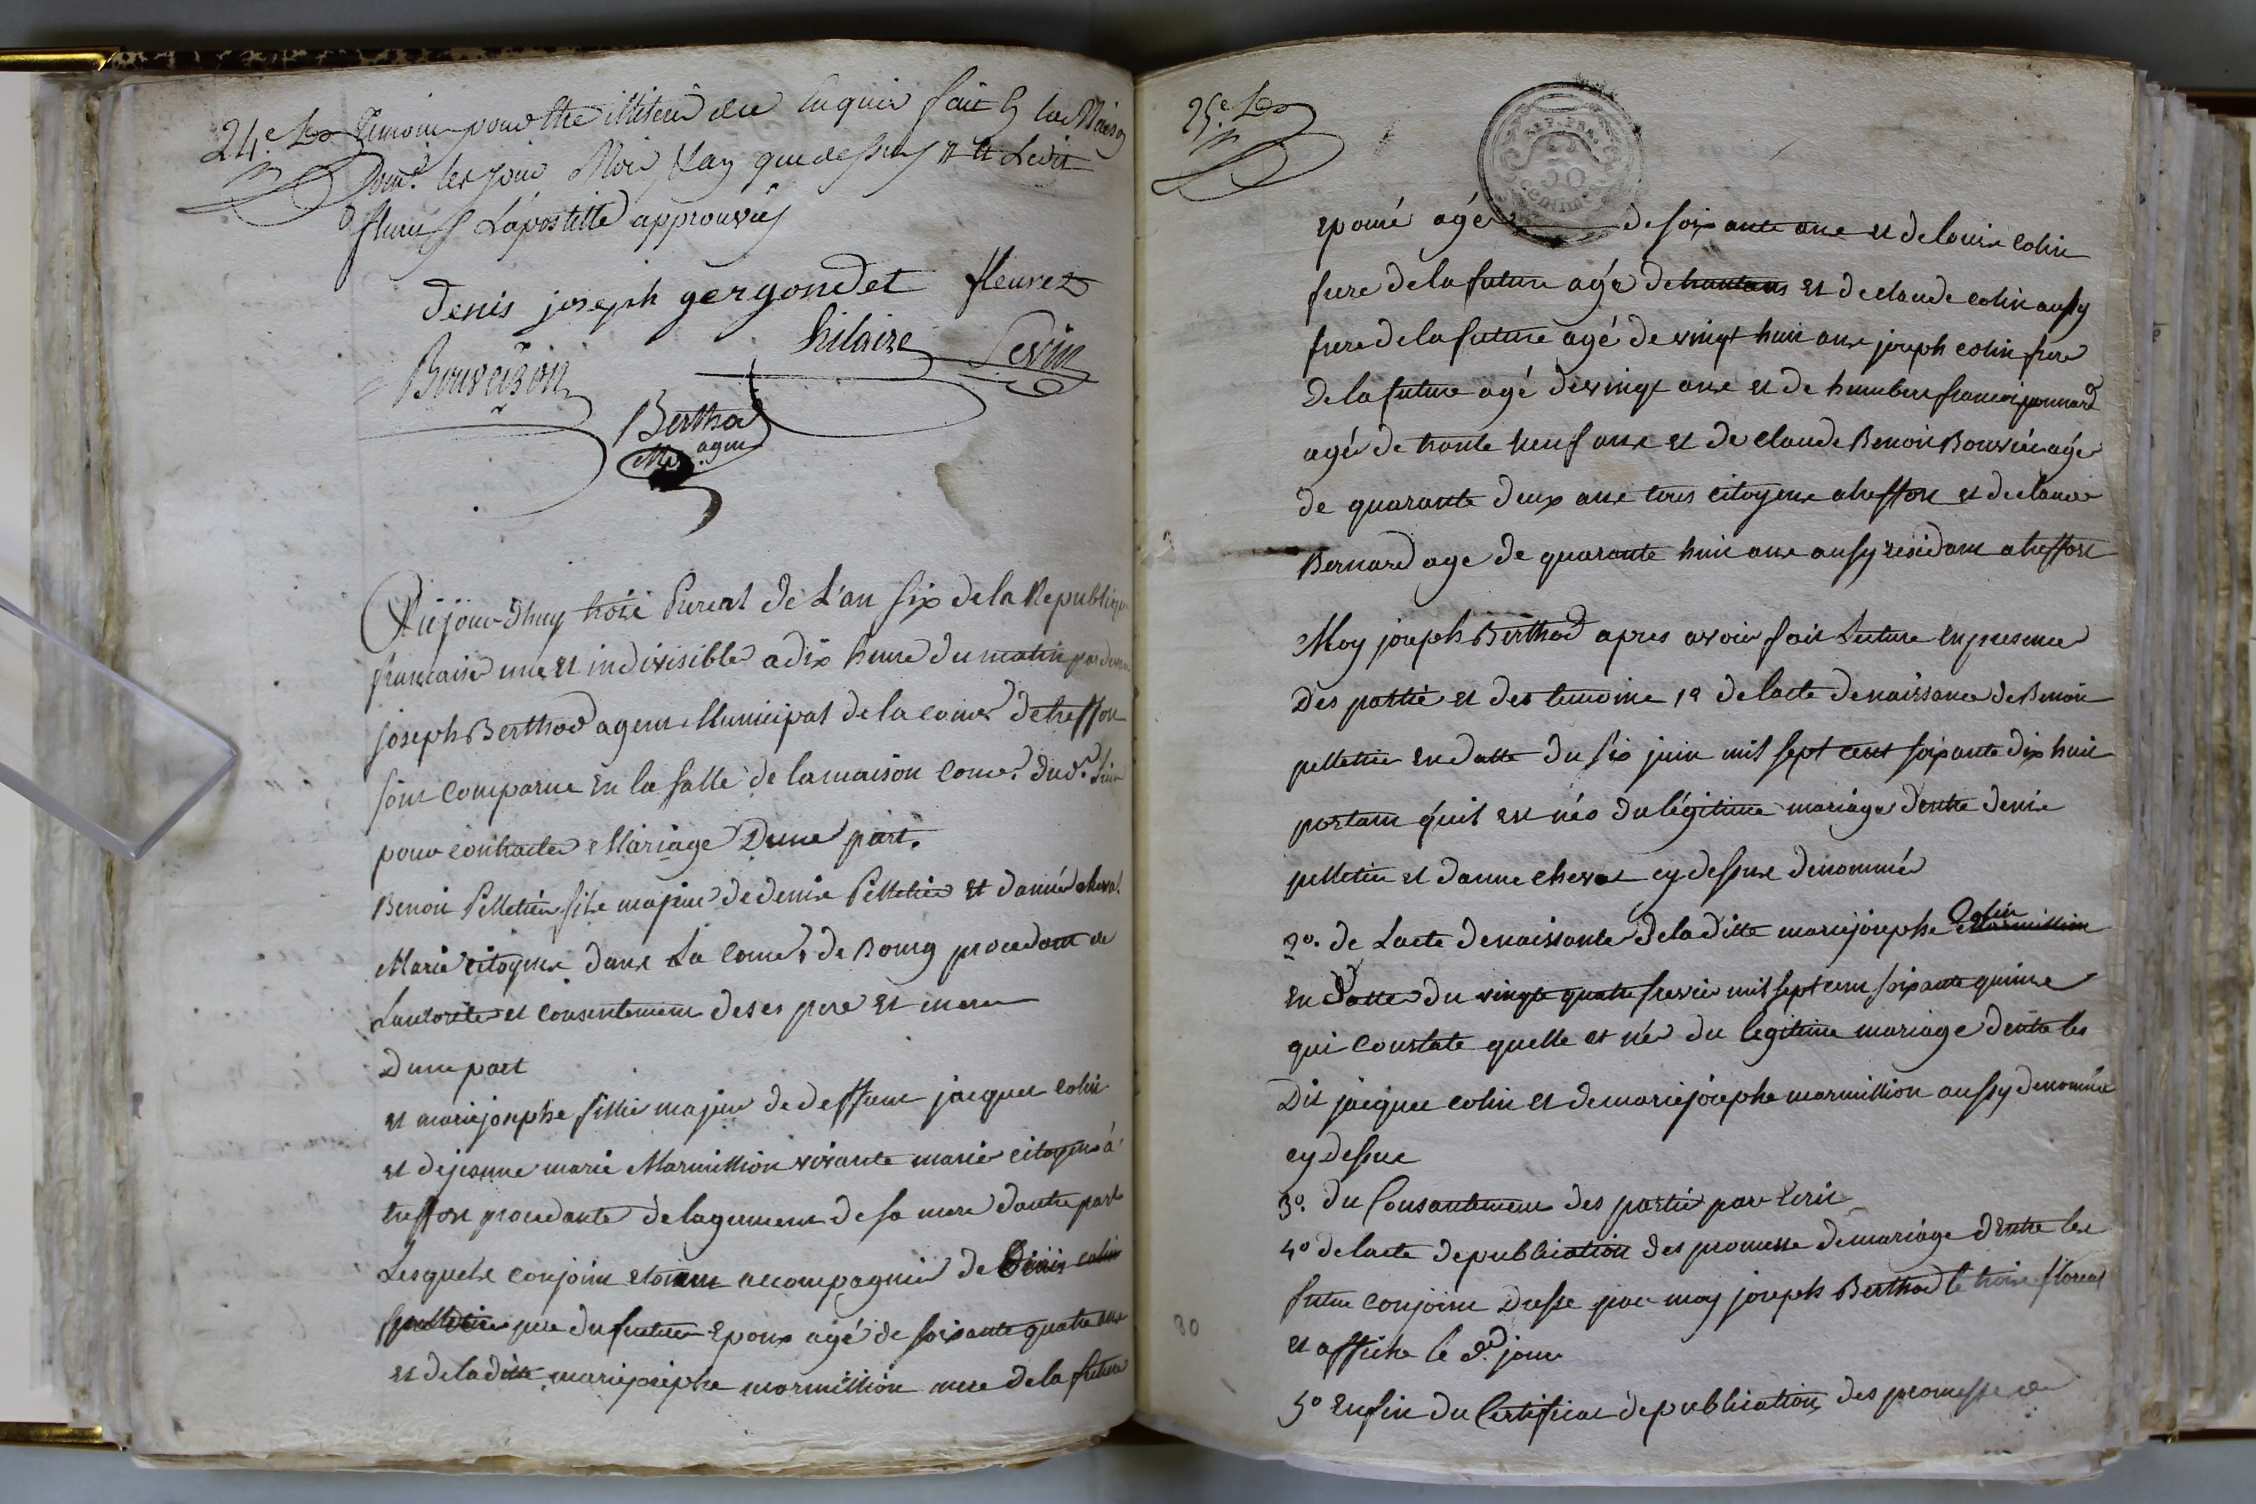 24.e
Témoins pour être illiteré de ce enquis fait à la Maison
Com.e les jour Mois & an que dessus et Ledit
fleuret L'apostille approuvés
denis joseph gergondet fleuret
hilaire
Bouvaison
Bertho
agen
Aujourd'huy troisé Pureal de L'an six de la Republique
francaise une et indivisible a dix heure du matin par devan
joseph Berthod agent Municipal de la comne de treffon
sont comparue en la salle de la maison comne dud.
pour contracter Mariage Dune part.
Benoit Pelletier fils majeur de denis Pelletier et danne cheval
Marié citoyens dans La comne de Bourg procedant de
Lautorite et consentement de ses pere et mere
Dune part
et marie josephe fillie majeur de deffunt jacques colin
et de jeanne marie Marmillion vivante marié citoyens à
treffon procedante de lagrement de sa mere dautre part
Lesquels conjoins etoient accompagnié de Denis colin
pelletier pere du futur Epoux agé de soixante quatre ans
et de la ditte marie josephe marmillion mere de la future
25.e
REP. FRA.
50
centimes
epouse agée de soixante ans et de louis colin
frere de la future agé de trantans et de claude colin aussy
frere de la future agé de vingt huit ans joseph colin frere
de la future agé de vingt ans et de humbert francois ponnard
agé de trante neuf ans et de Claude Benoit Bouvier agé
de quarante deux ans tous citoyens a treffon et de claude
Bernard age de quarante huit ans aussy residant a treffort
Moy joseph Berthod apres avoir fait Lecture en presence
Des partie et des temoins 1° de lacte de naissance de Benoit
pelletier en datte du six juin mil sept cent soixante dix huit
portant qu'il est née du légitime mariage d'entre denis
pelletier et danne cheval cy dessus denommée
Colin
2°. de Lacte de naissante de la ditte marie josephe Marmillion
en datte du vingte quatre frevier mil sept cent soixante quinse
qui constate quelle et née du legitime mariage dentre les
Dit jacques colin et de marie josephe marmillion aussy denommée
cy dessus
3°. du Consantement des partie par Ecrit
4° de lacte de publication des promesse de mariage d'entre les
futur conjoins Dresse par moy joseph Berthod le troise floreal
et affiche le d.d jour
5° enfin du Certificat de publication des promesse de
30